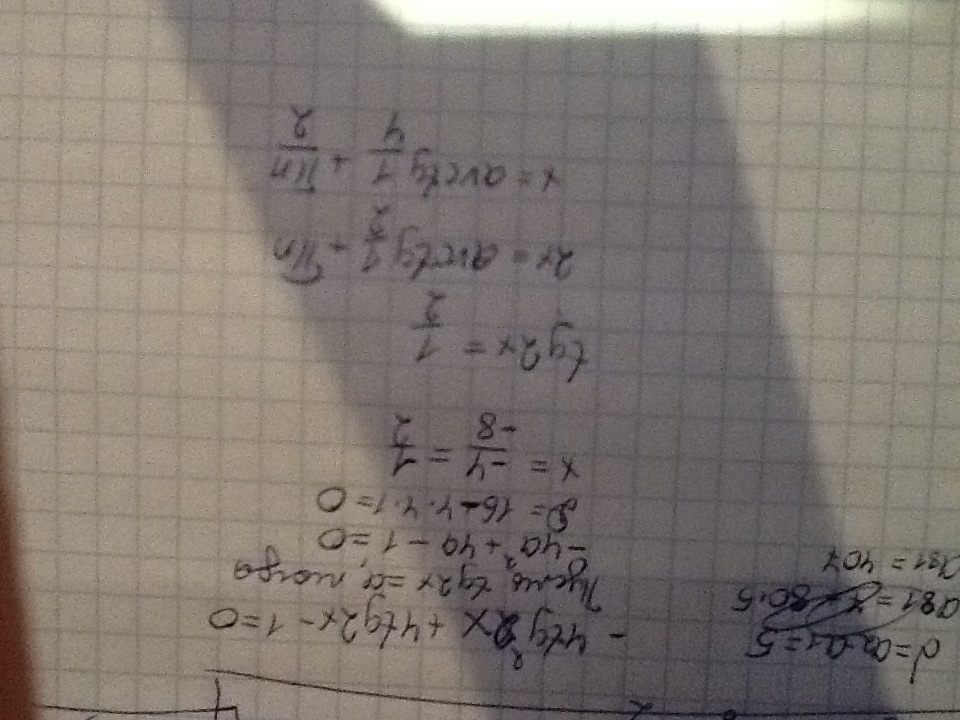 d=a2-a1=5
a81=
a81=407
-4tg²2x+4tg2x-1=0
Пусть tg2x=a, тогда
-4a²+4a-1=0
D=16-4·4·1=0
x=-4/-8=1/2
tg2x=1/2
2x=arctg1/2+πn
x=arctg1/4+πn/2